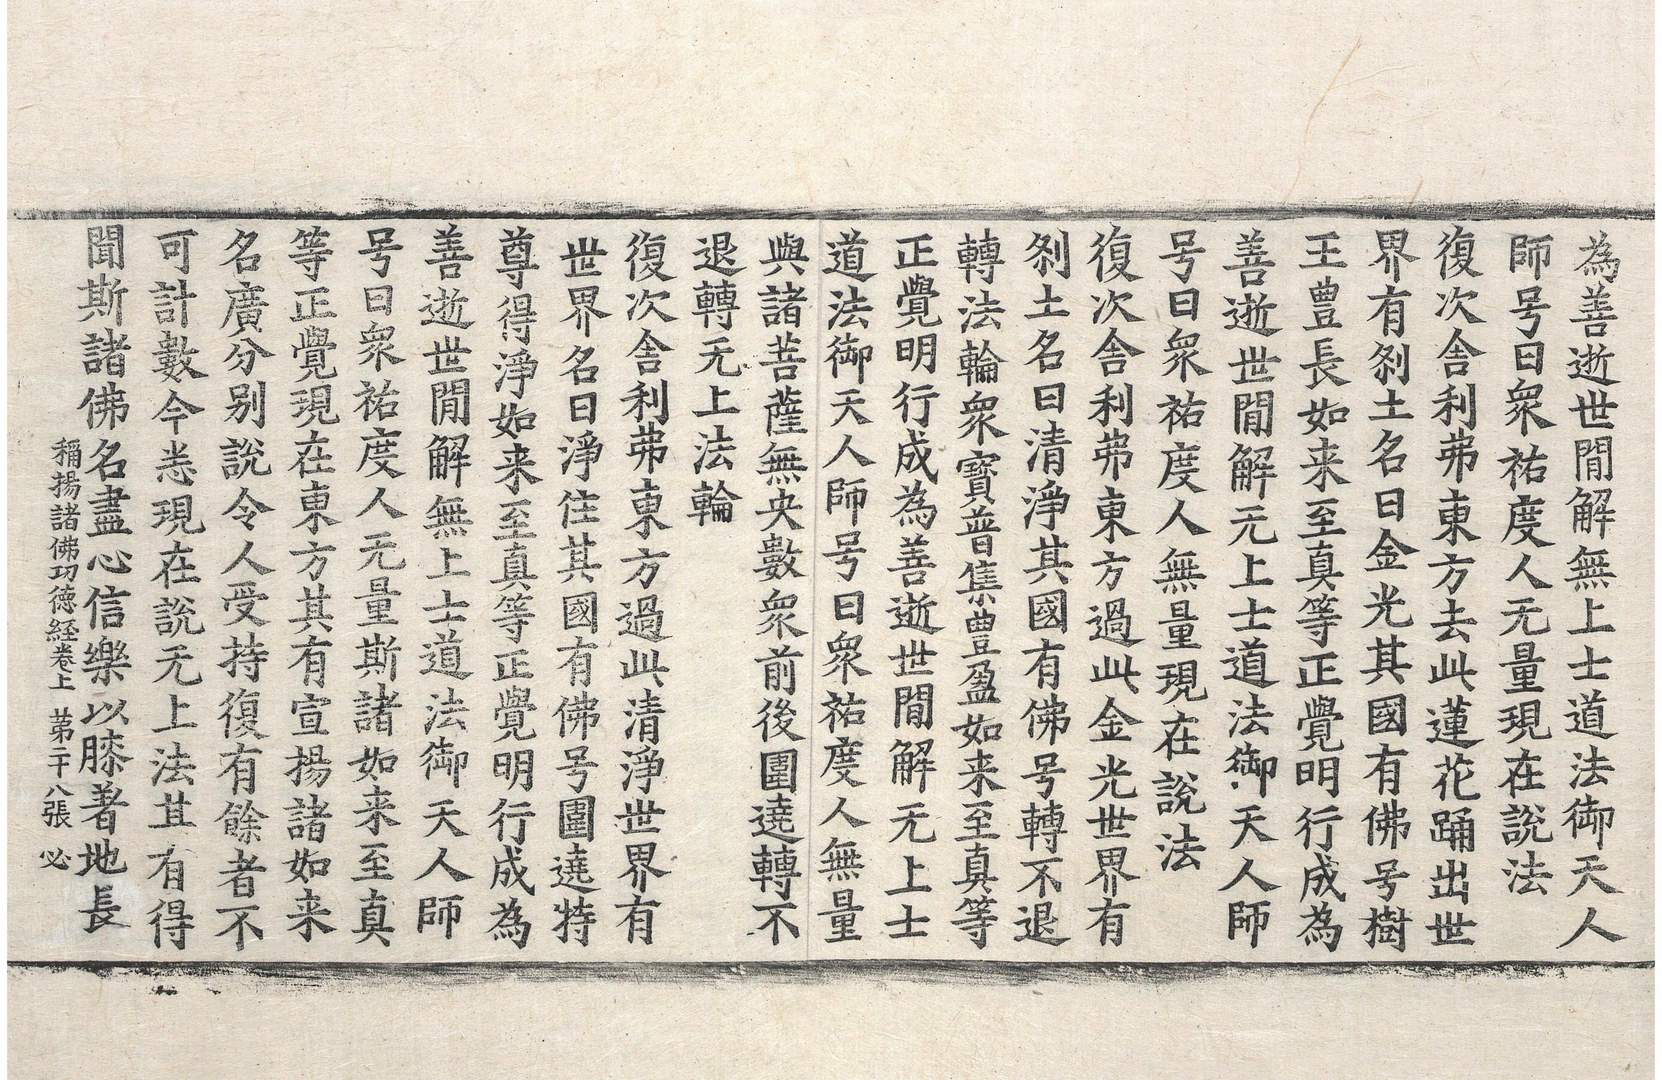 為善逝世間解無上士道法御天人
師号曰衆祐度人无量現在說法
復次舍利弗東方去此蓮花踊出世
界有刹土名曰金光其國有佛号樹
王豊長如来至真等正覺明行成為
善逝世間解无上士道法御天人師
号曰衆祐度人無量現在說法
復次舍利弗東方過此金光世界有
刹土名曰清淨其國有佛号轉不退
轉法輪衆寶普集豊盈如来至真等
正覺明行成為善逝世間解无上士
道法御天人師号曰衆祐度人無量
與諸菩薩無央數衆前後圍遶轉不
退轉无上法輪
復次舍利弗東方過此清淨世界有
世界名曰淨住其國有佛号圍遶特
尊得淨如来至真等正覺明行成為
善逝世間解無上士道法御天人師
号曰衆祐度人无量斯諸如来至真
等正覺現在東方其有宣揚諸如来
名廣分別說令人受持復有餘者不
可計數今悉現在說无上法其有得
聞斯諸佛名盡心信樂以膝著地長
稱揚諸佛功德經卷上 苐二十八張 必